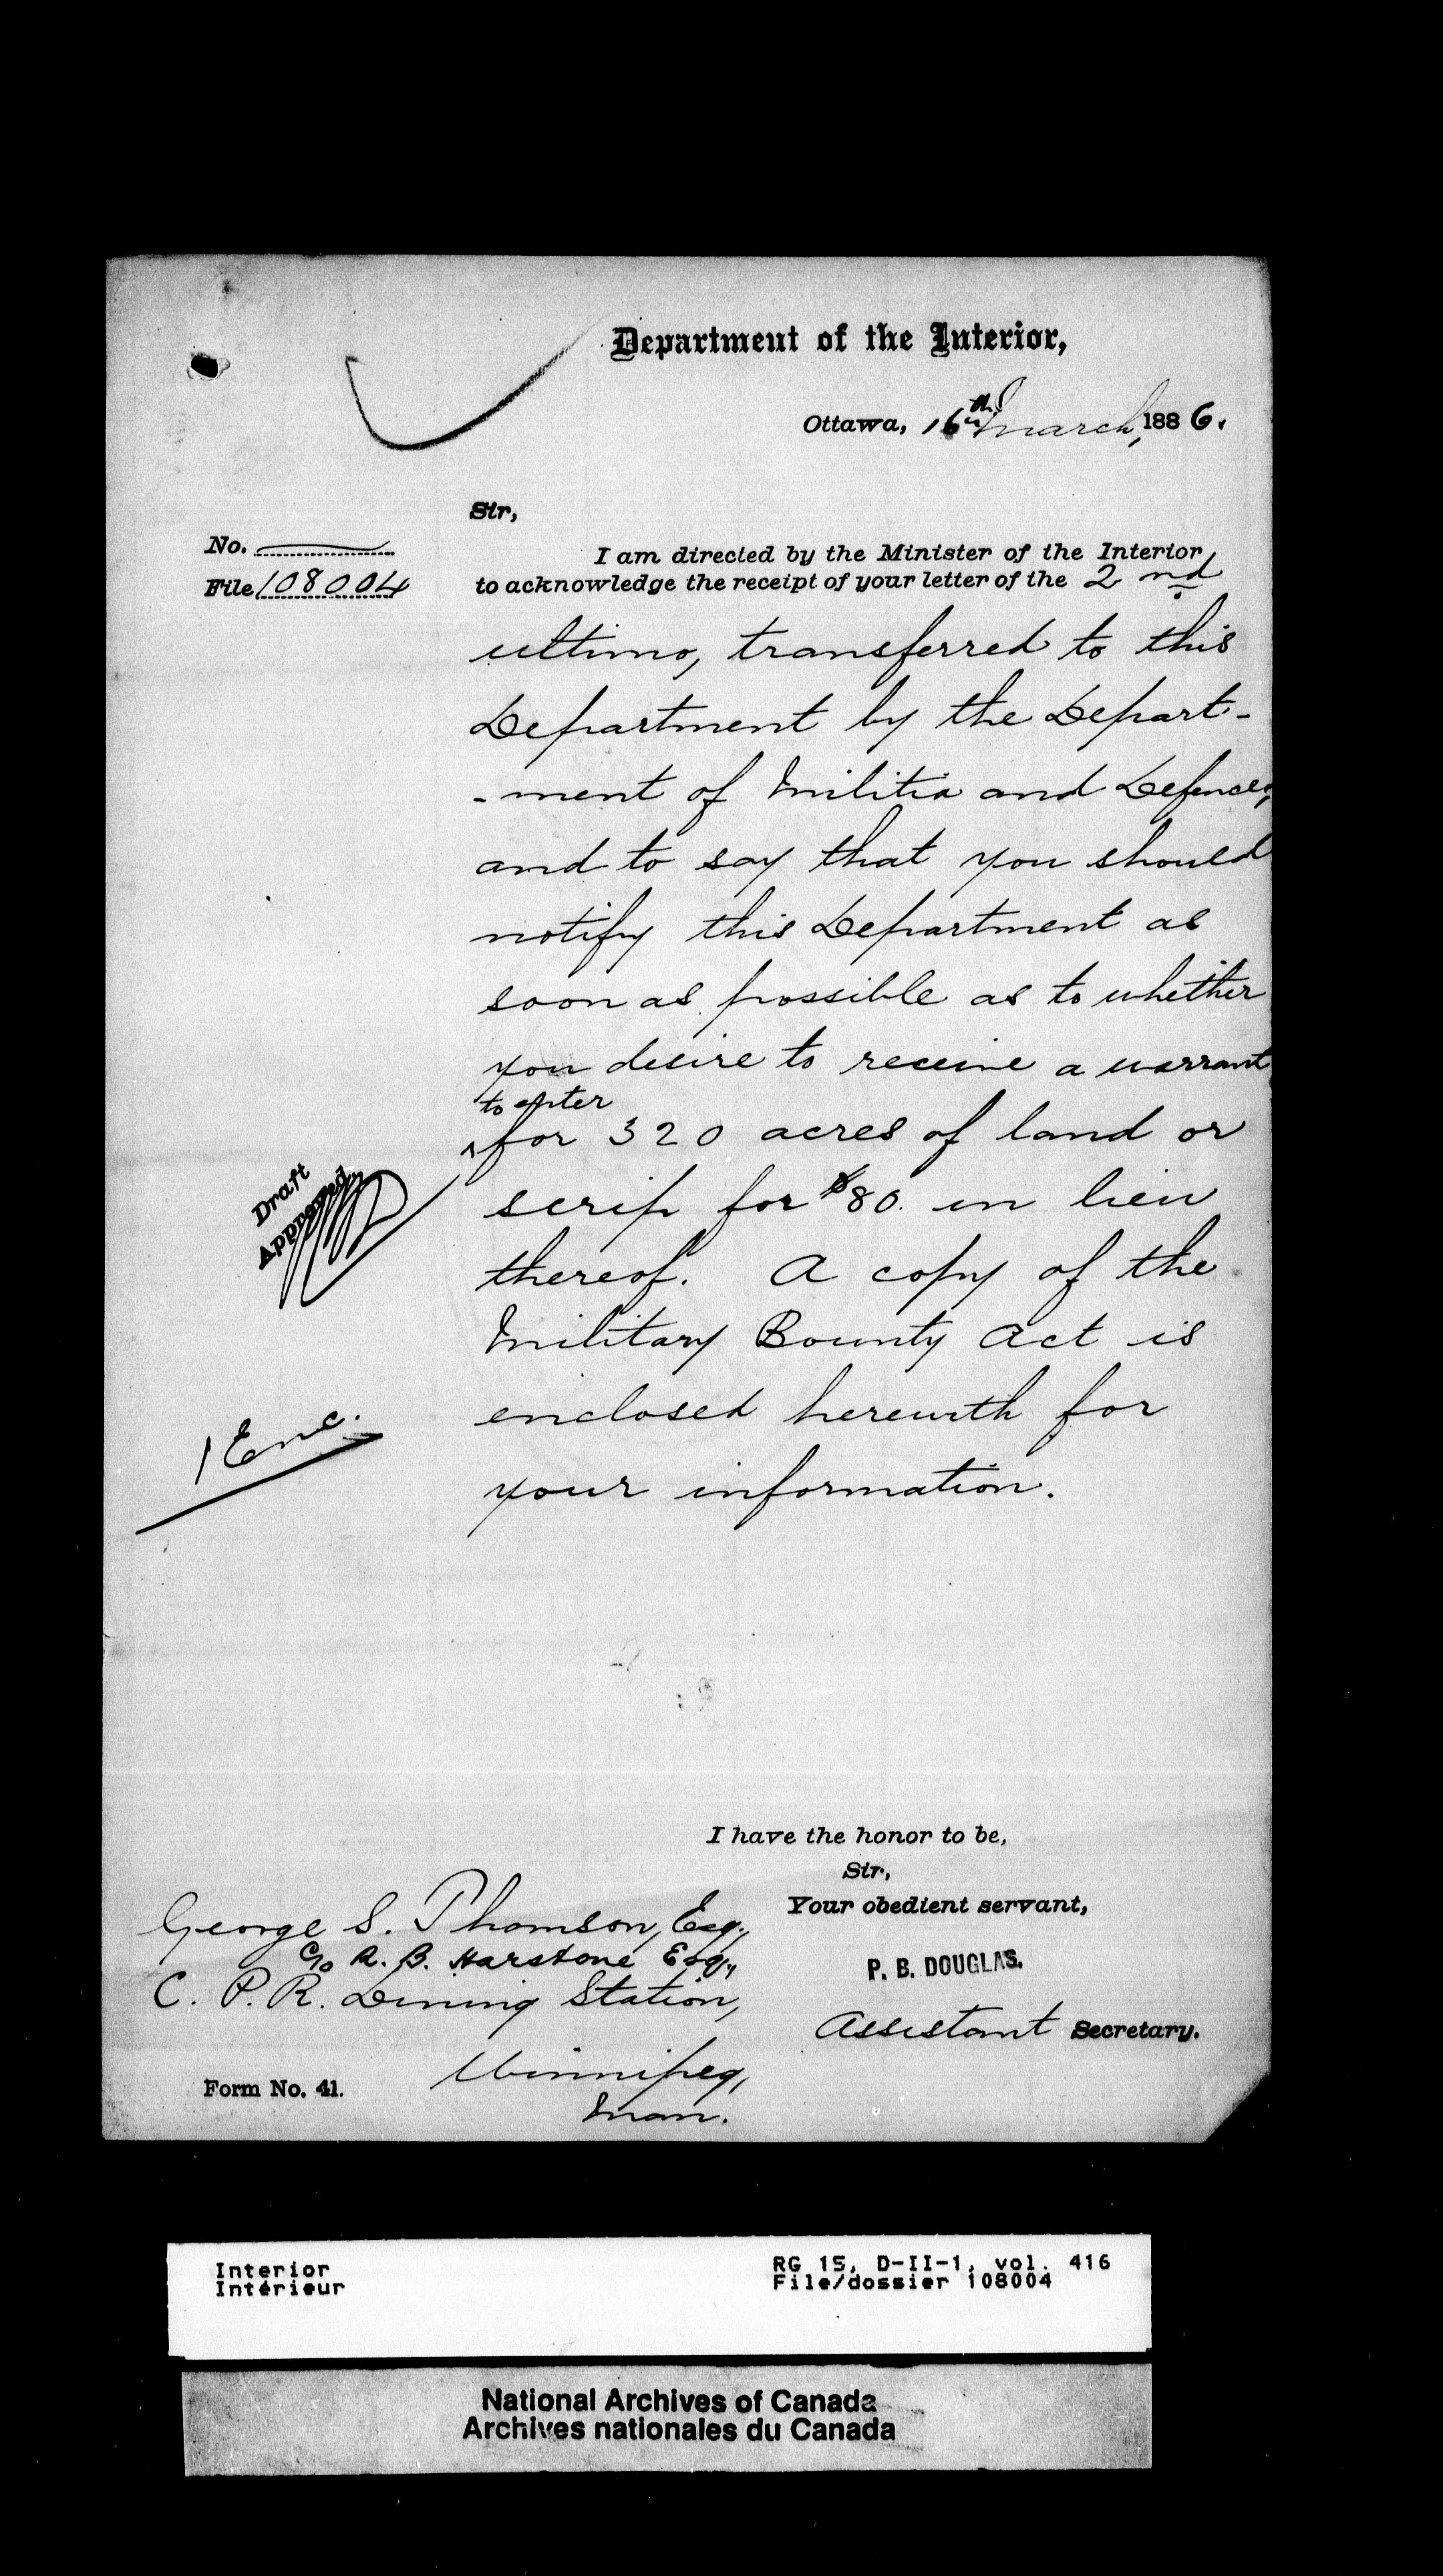 Department of the Interior,
Ottawa, 16th March, 1886.
Sir,
No.
File 108004
I am directed by the Minister of the Interior,
to acknowledge the receipt of your letter of the 2nd
ultimo, transferred to this
Department by the Depart-
-ment of Militia and Defence,
and to say that you should
notify this Department as
soon as possible as to whether
you desire to receive a warrant
to enter
for 320 acres of land or
scrip for $80. in lieu
thereof. A copy of the
Military Bounty Act is
enclosed herewith for
your information.
Draft
Approved
1 Enc.
I have the honor to be,
Sir,
Your obedient servant,
P. B. DOUGLAS.
Assistant Secretary.
George S. Thomson, Esq.,
c/o A. B. Harstone Esq.,
C. P. R. Dining Station,
Winnipeg,
Man.
Form No. 41.
Interior
Intérieur
RG 15, D-II-1, vol. 416
File/dossier 108004
National Archives of Canada
Archives nationales du Canada